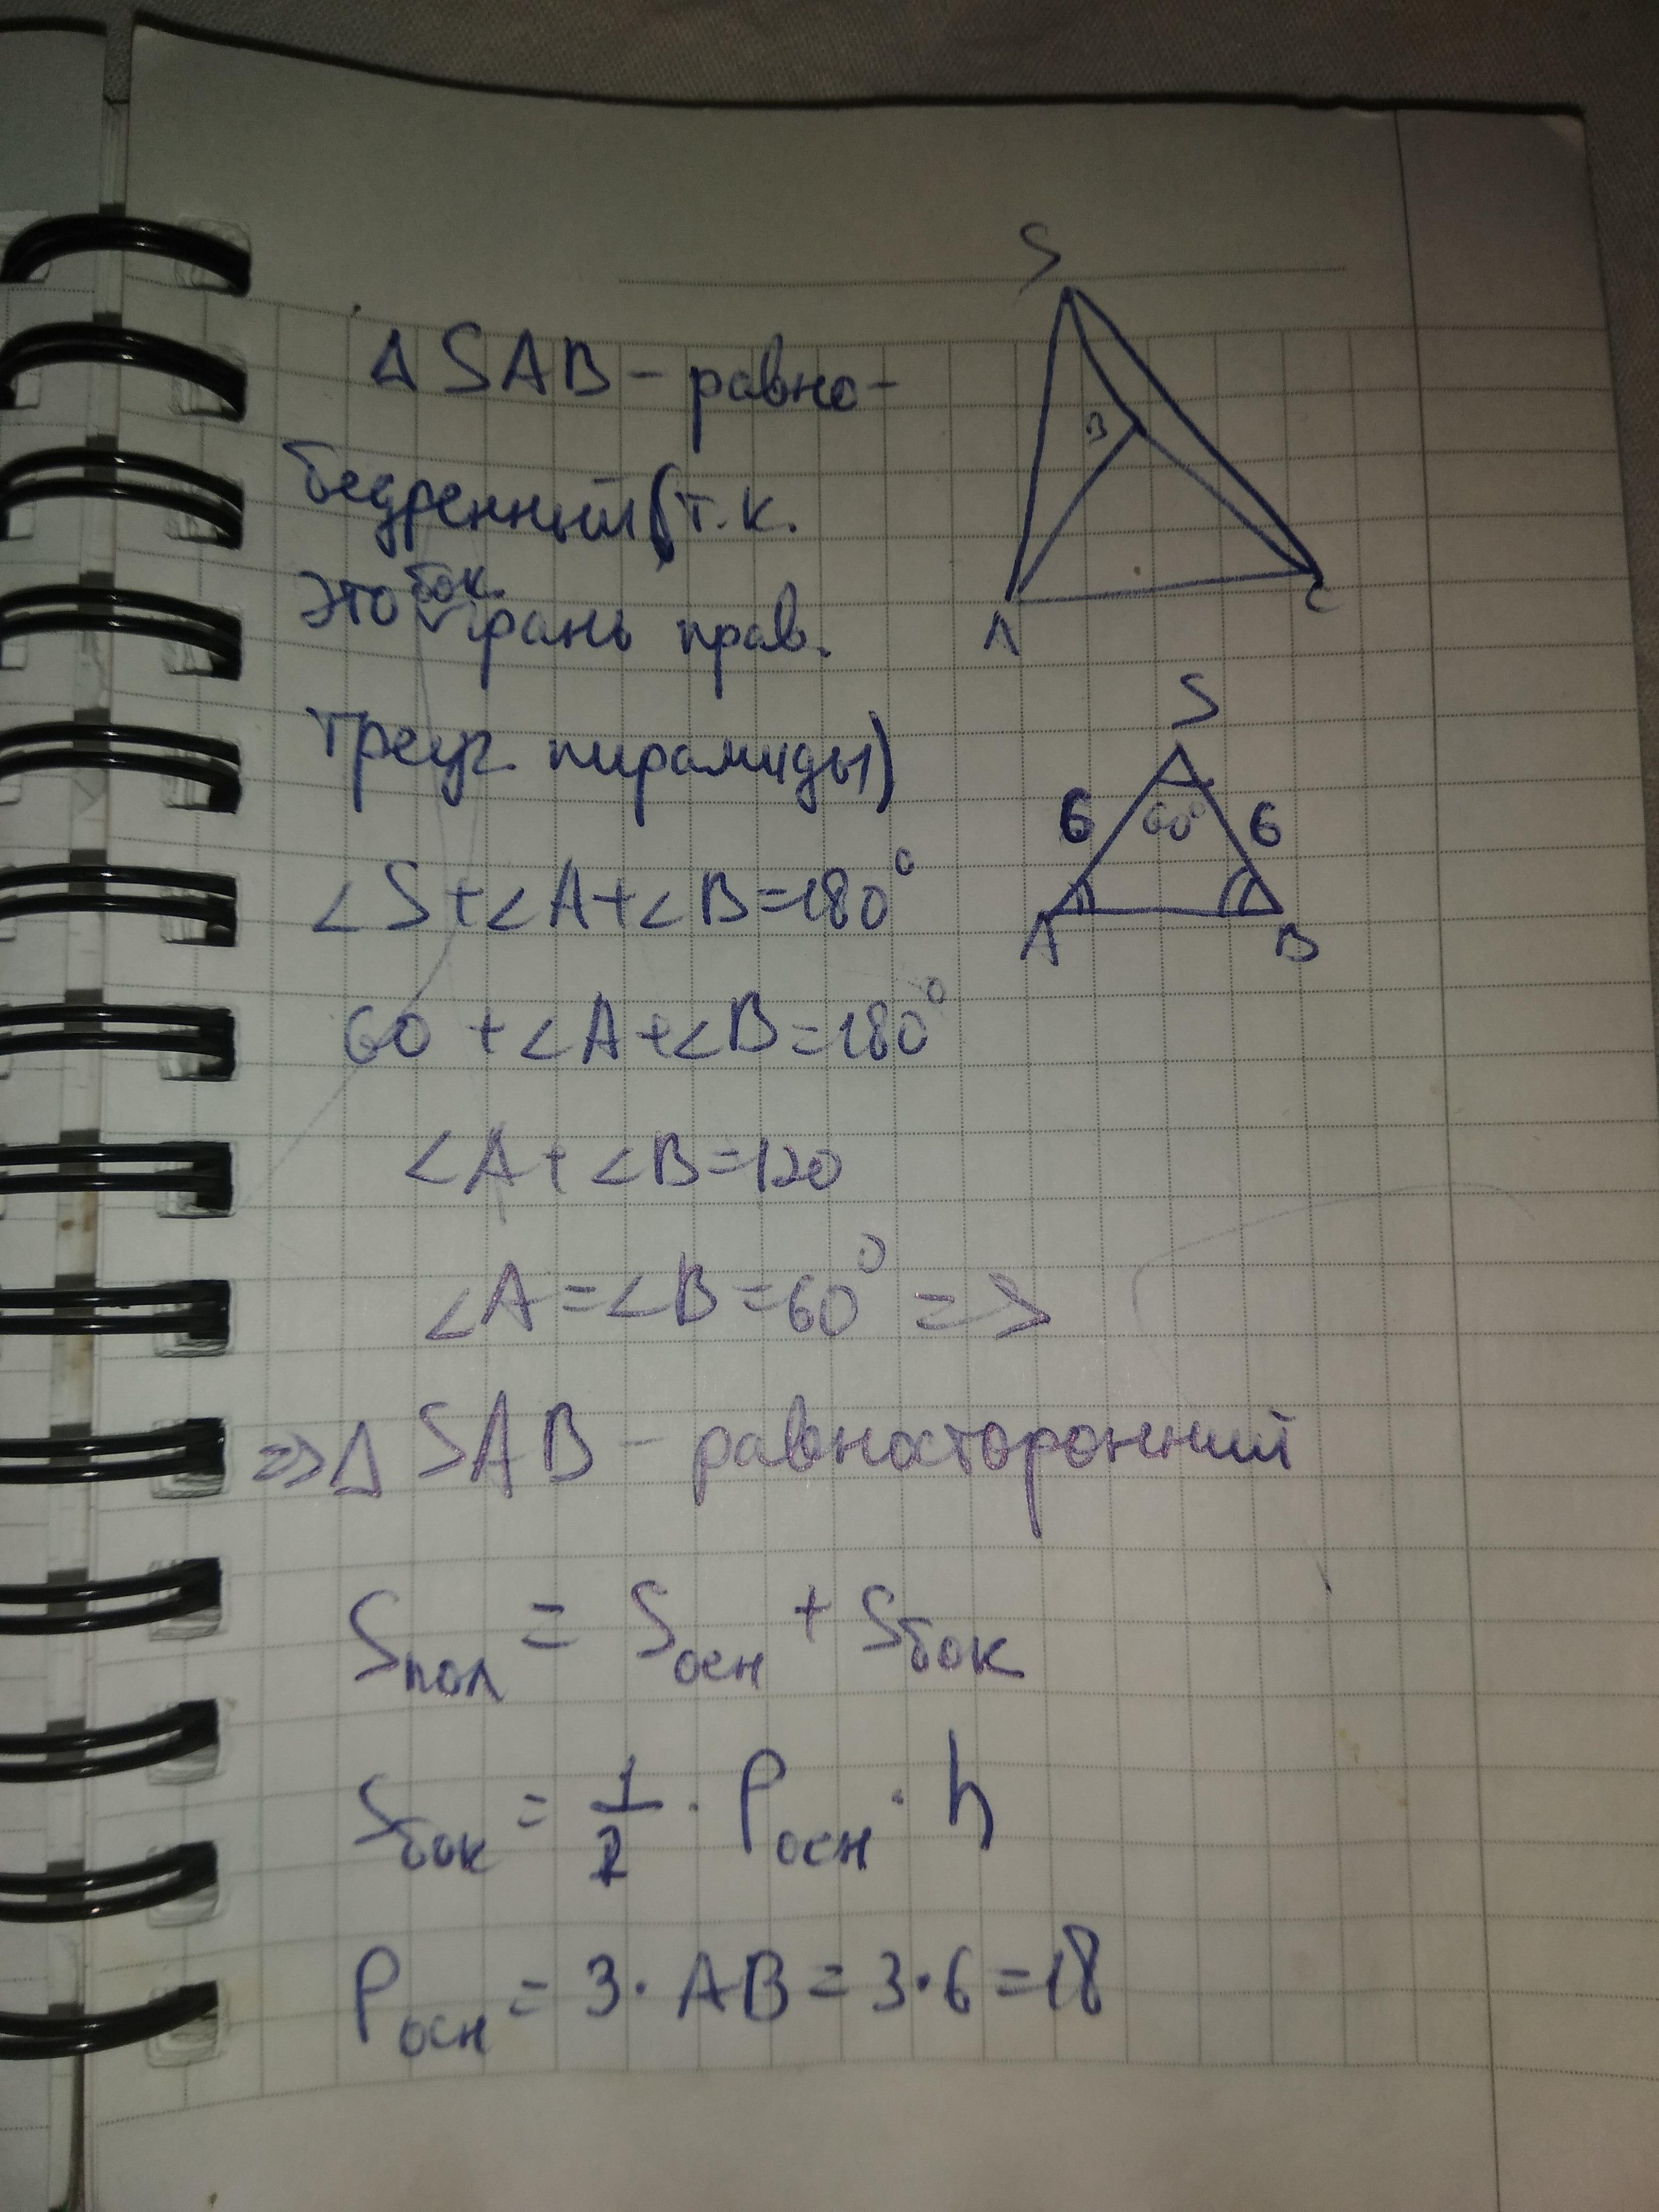 S
∆ SAB - равно-
бедренный (т.к.
B
бок.
это грань прав.
A
C
S
треуг. пирамиды)
6 60° 6
∠S+∠A+∠B=180°
A B
60 +∠A+∠B=180°
∠A+∠B=120
∠A=∠B=60° =>
=>∆ SAB - равносторонний
Sпол = Sосн + Sбок
Sбок = 1/2 · Pосн · h
Pосн = 3· AB = 3·6 =18